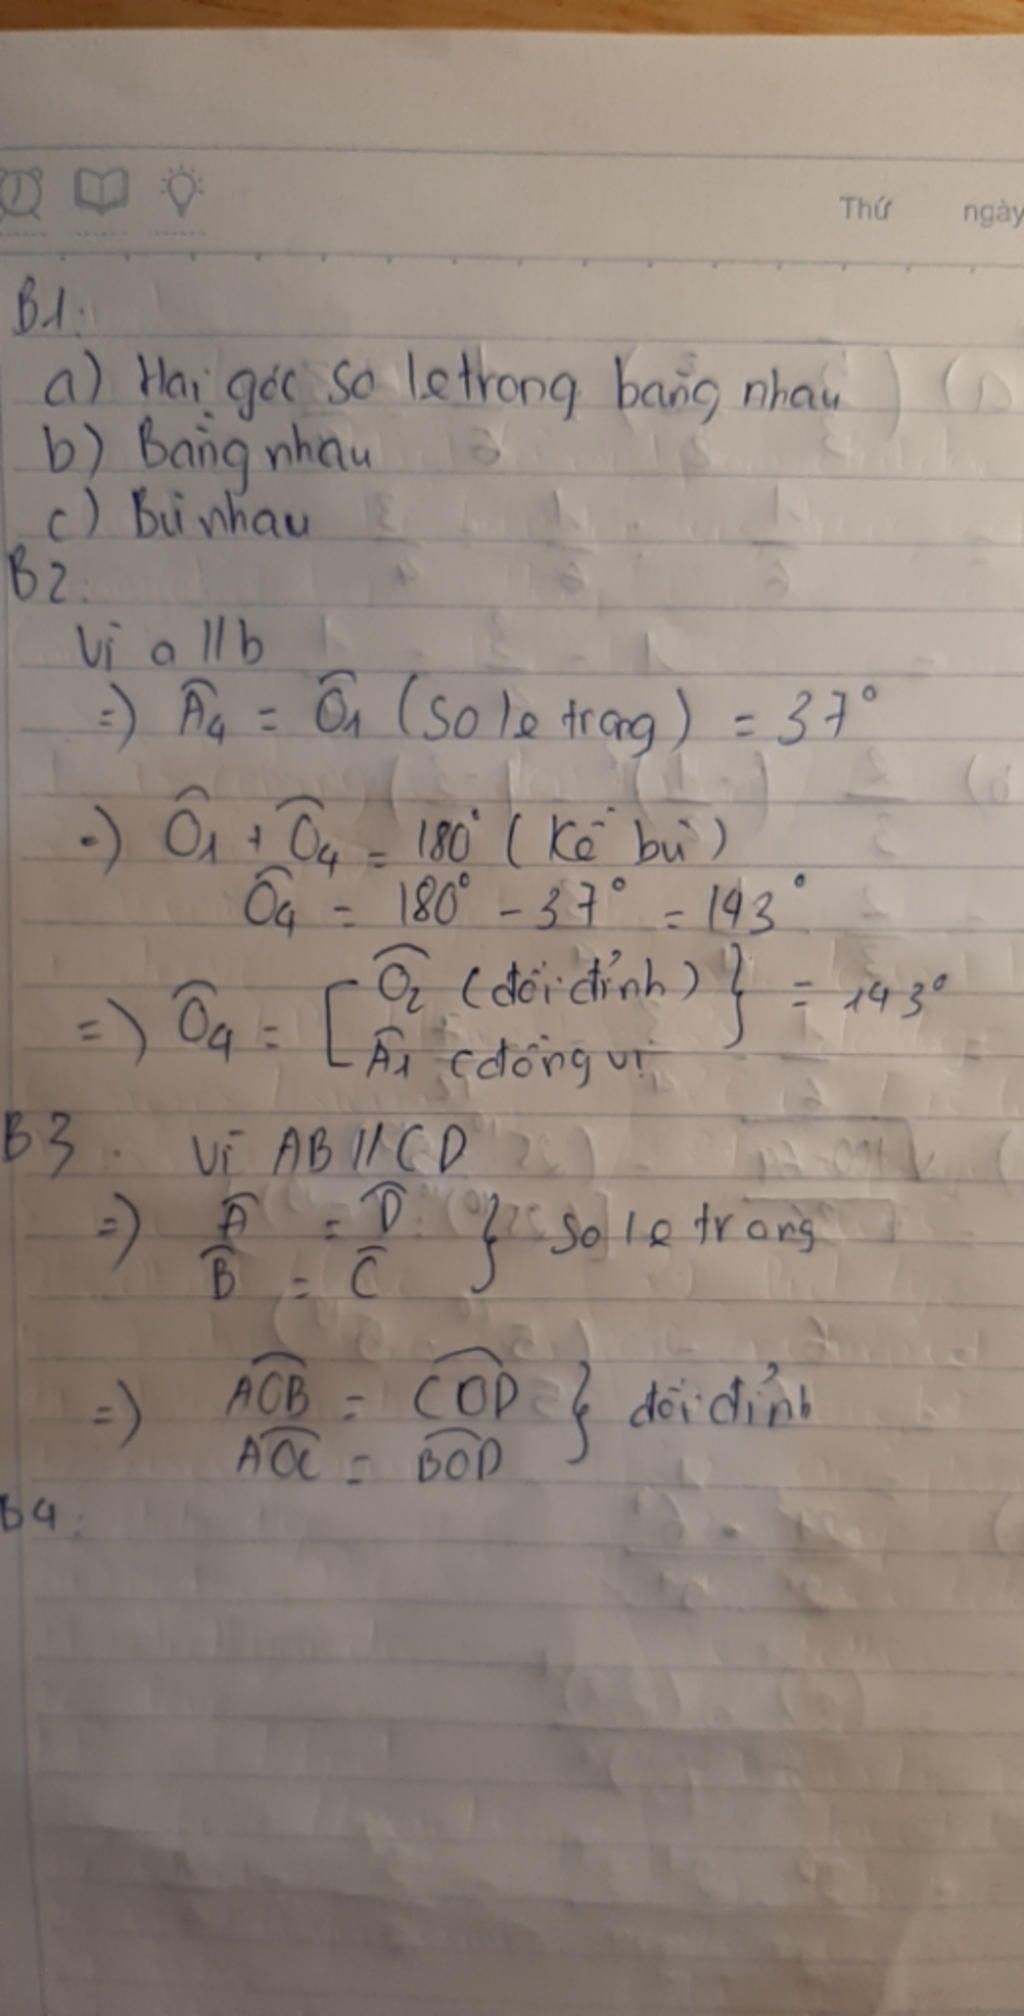 Thứ ngày
B1:
a) Hai góc so le trong bằng nhau
b) Bằng nhau
c) Bù nhau
B2:
Vì a // b
=) Â4 = Ô1 (so le trong) = 37°
=) Ô1 + Ô4 = 180° (Kề bù)
Ô4 = 180° - 37° = 143°
=) Ô4 = [ Ô2 (đối đỉnh) } = 143°
Â1 (đồng vị
B3. Vì AB // CD
=) Â = D̂ } so le trong
B̂ = Ĉ
=) AOB = COD } đối đỉnh
AOC = BOD
B4: